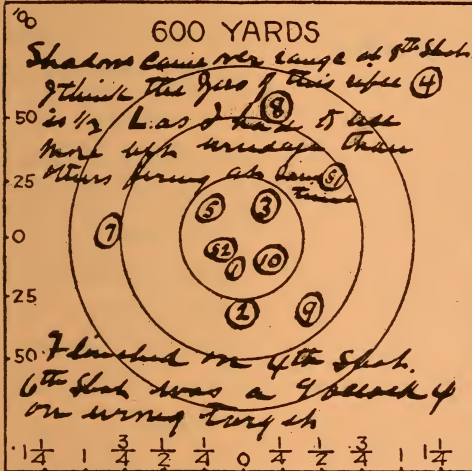 100
600 YARDS
Shadows came over range at 8th Shot.
I think the Zero of this rifle 4
50 is 1/2 L. as I had to use 8
more left windage than
25 others firing at same S1
time
5 3
0 7
S2 10
1
25 1 9
50 Flinched on 4th Shot.
6th Shot was a 9 oclock 4
on wrong target
1 1/4 1 3/4 1/2 1/4 0 1/4 1/2 3/4 1 1 1/4